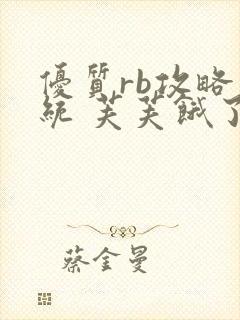 優質rb攻略
統 芙芙餓了
蔡金曼